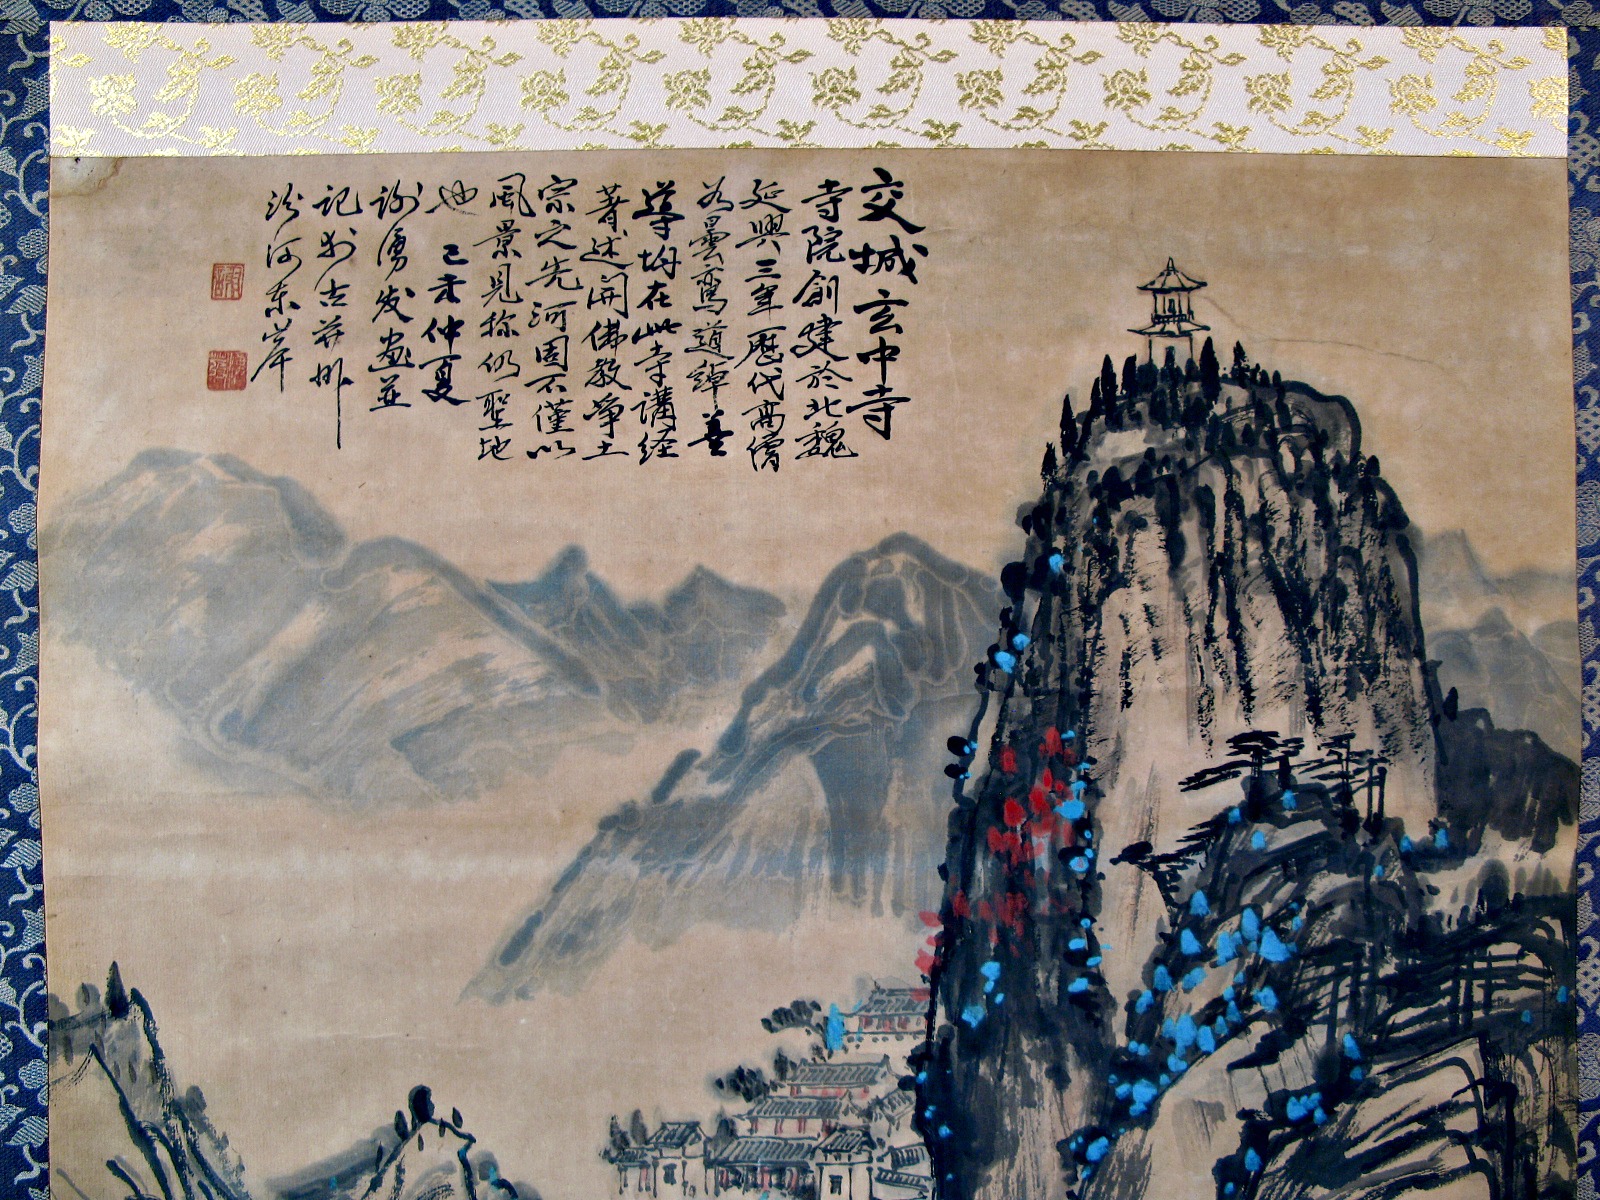 交城玄中寺
寺院創建於北魏
延興三年歷代高僧
为曇鸞道綽善
導均在此寺講经
著述開佛教净土
宗之先河固不僅以
風景見称仍聖地
也 己未仲夏
謝勇发画並
記于古并州
汾河东岸